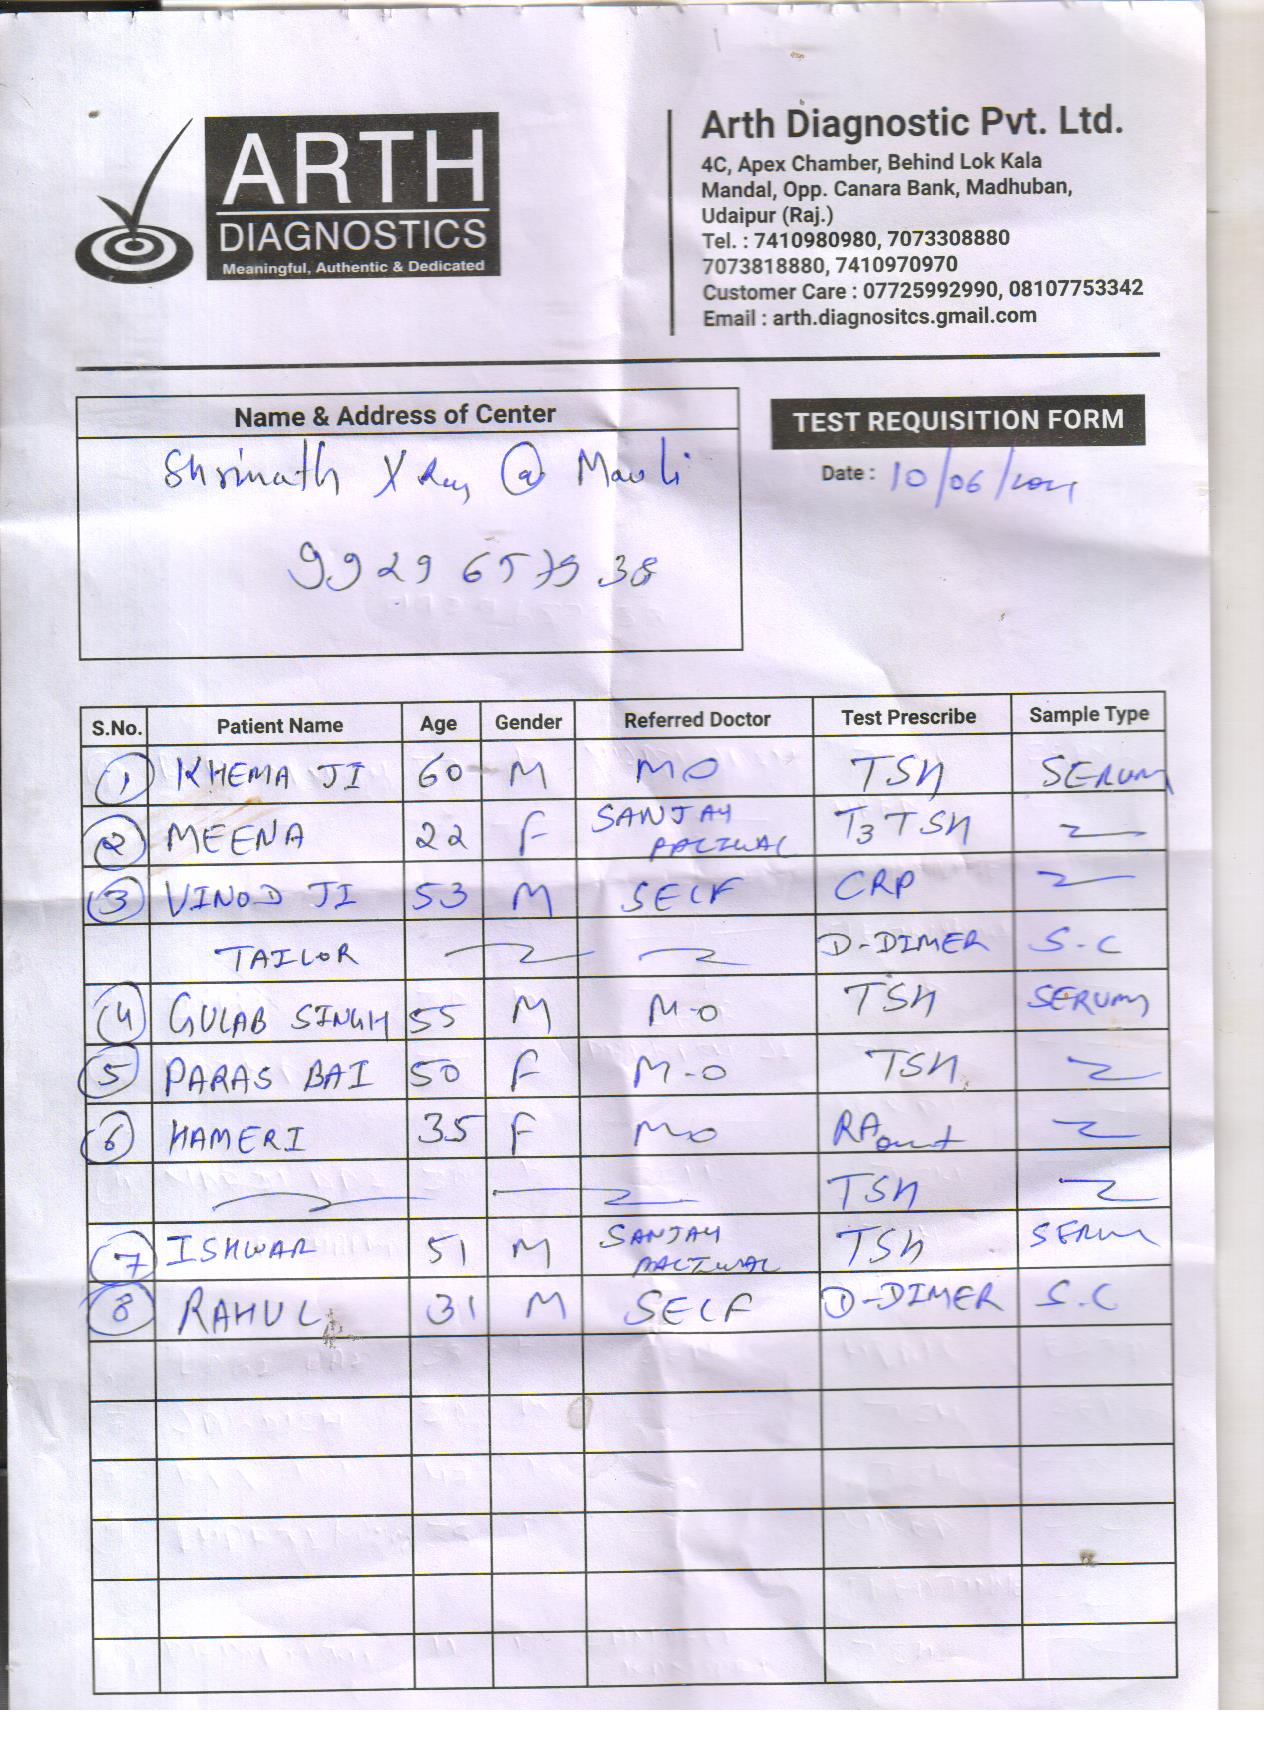 ARTH
DIAGNOSTICS
Meaningful, Authentic & Dedicated
Arth Diagnostic Pvt. Ltd.
4C, Apex Chamber, Behind Lok Kala
Mandal, Opp. Canara Bank, Madhuban,
Udaipur (Raj.)
Tel. : 7410980980, 7073308880
7073818880, 7410970970
Customer Care : 07725992990, 08107753342
Email : arth.diagnositcs.gmail.com
Name & Address of Center
Shrinath X Ray @ Mavli
TEST REQUISITION FORM
Date : 10/06/2021
S.No. Patient Name Age Gender Referred Doctor Test Prescribe Sample Type
1 KHEMA JI 60 M MO TSH SERUM
2 MEENA 22 F SANJAY PALIWAL T3 TSH
3 VINOD JI 53 M SELF CRP
TAILOR D-DIMER S.C
4 GULAB SINGH 55 M M-O TSH SERUM
5 PARAS BAI 50 F M-O TSH
6 HAMERI 35 F MO RA
TSH
7 ISHWAR 51 M SANJAY PALIWAL TSH SERUM
8 RAHUL 31 M SELF D-DIMER S.C